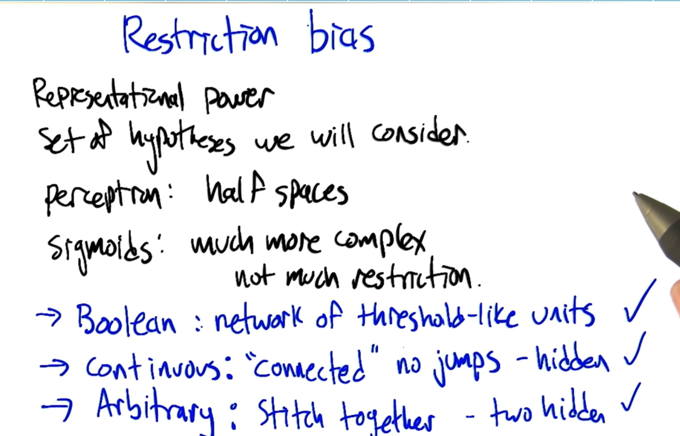 Restriction bias
Representational power
set of hypotheses we will consider.
perceptron: half spaces
sigmoids: much more complex
not much restriction.
→ Boolean : network of threshold-like units ✓
→ continuous: "connected" no jumps - hidden ✓
→ Arbitrary : stitch together - two hidden ✓